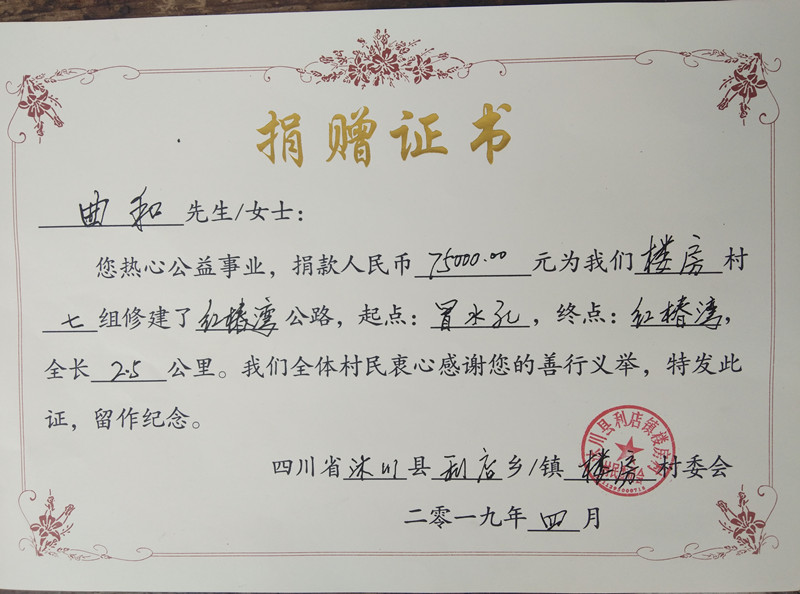 捐赠证书
曲和先生/女士：
您热心公益事业，捐款人民币75000.00元为我们楼房村
七组修建了红椿湾公路，起点：冒水孔，终点：红椿湾，
全长2.5公里。我们全体村民衷心感谢您的善行义举，特发此
证，留作纪念。
四川省沐川县利店乡/镇楼房村委会
二零一九年四月